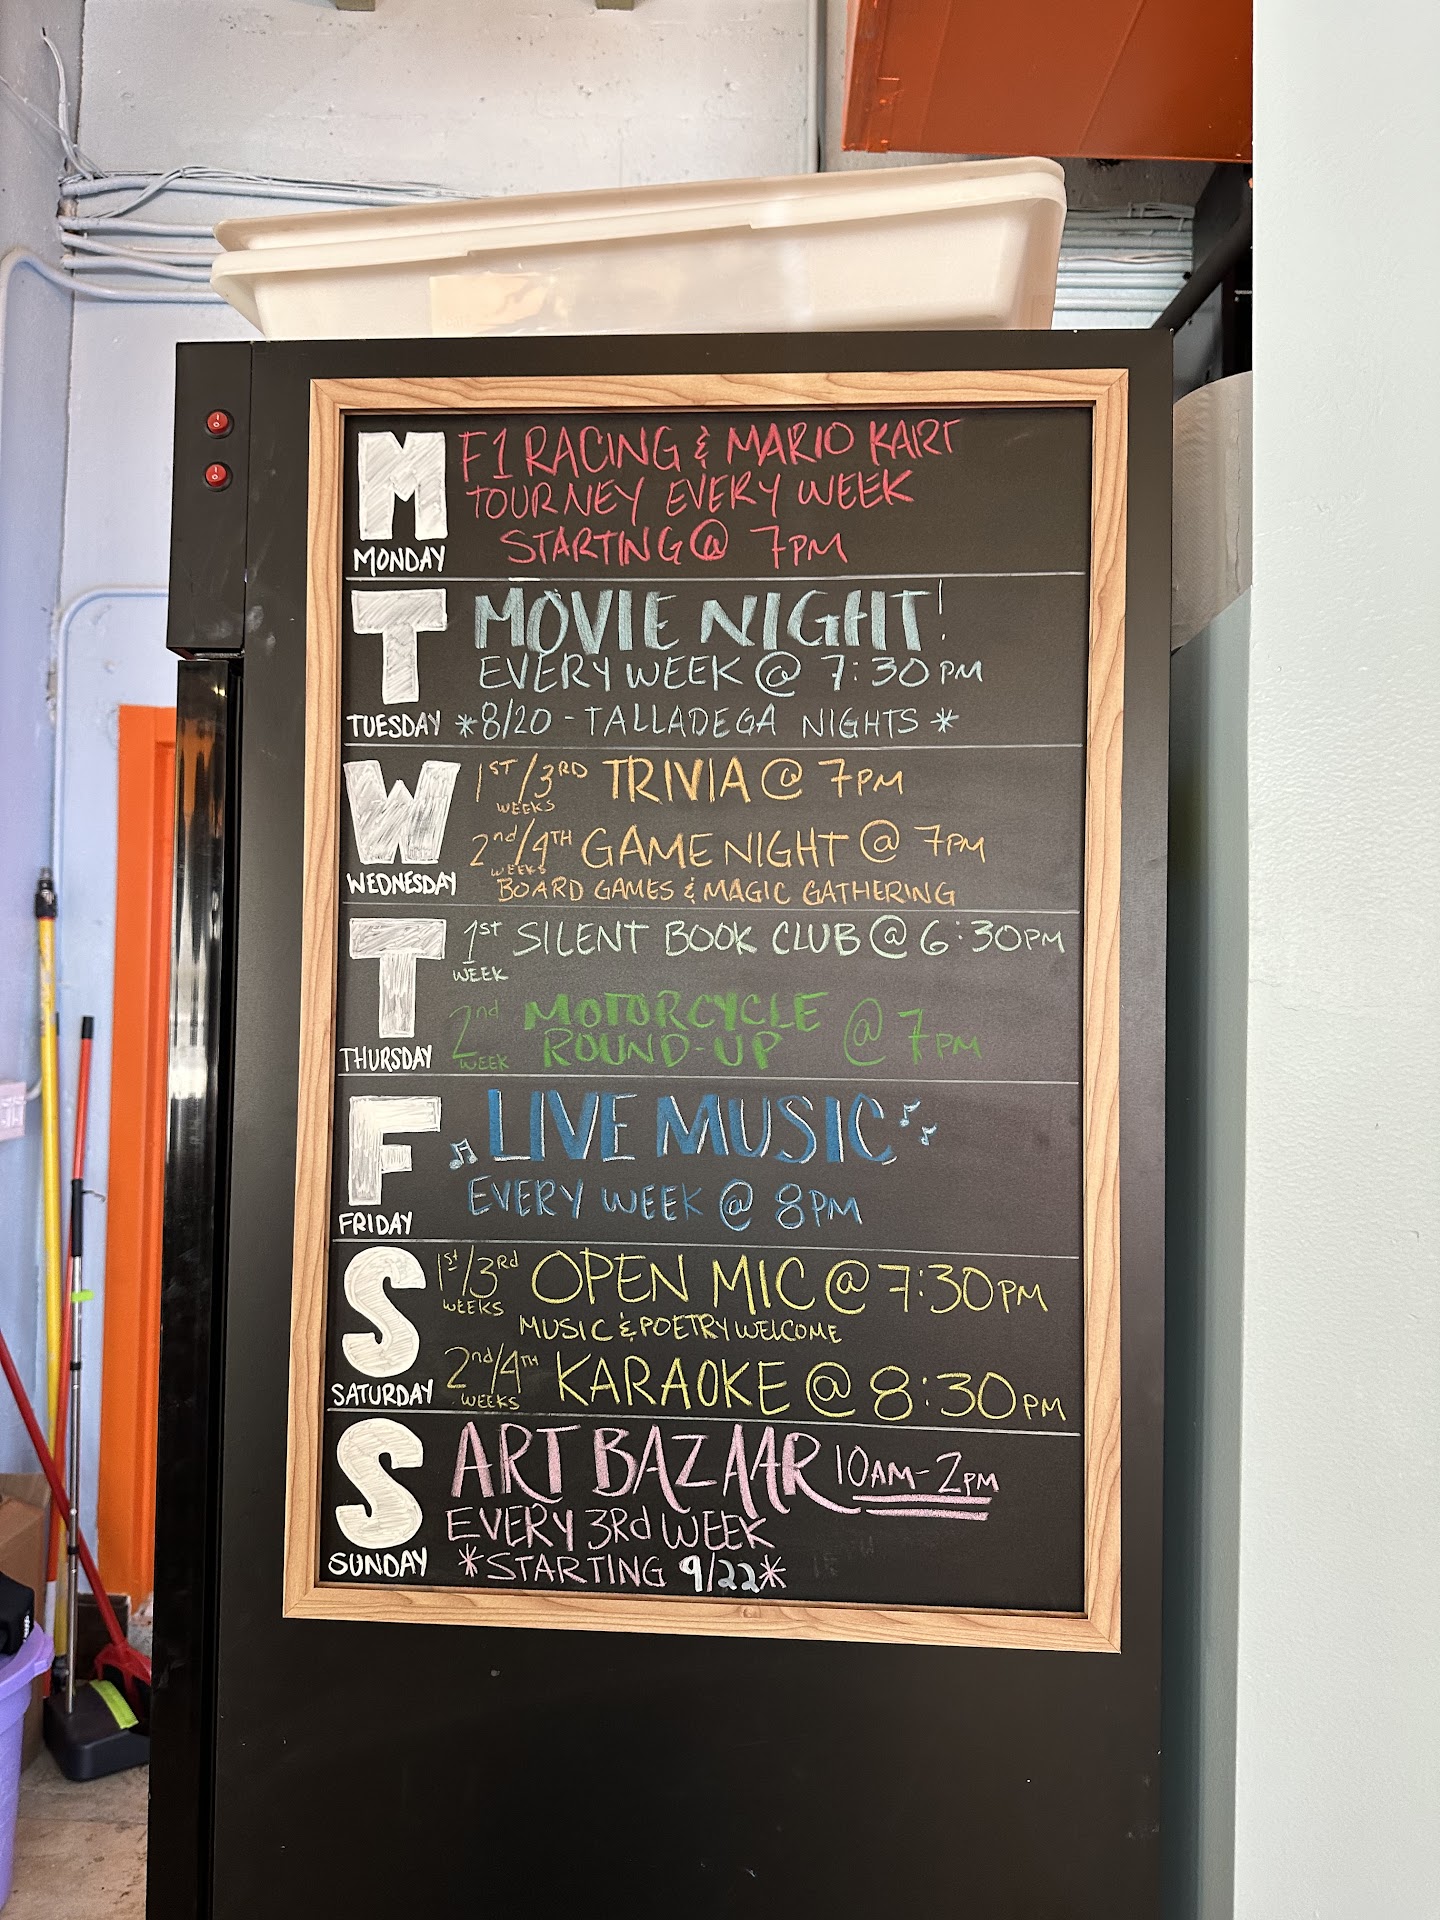 M
MONDAY
F1 RACING & MARIO KART
TOURNEY EVERY WEEK
STARTING @ 7PM
T
TUESDAY
MOVIE NIGHT!
EVERY WEEK @ 7:30PM
*8/20 - TALLADEGA NIGHTS*
W
WEDNESDAY
1ST/3RD WEEKS TRIVIA @ 7PM
2nd/4TH WEEKS GAME NIGHT @ 7PM
BOARD GAMES & MAGIC GATHERING
T
THURSDAY
1st WEEK SILENT BOOK CLUB @ 6:30PM
2nd WEEK MOTORCYCLE ROUND-UP @ 7PM
F
FRIDAY
LIVE MUSIC
EVERY WEEK @ 8PM
S
SATURDAY
1st/3Rd WEEKS OPEN MIC @ 7:30PM
MUSIC & POETRY WELCOME
2nd/4TH WEEKS KARAOKE @ 8:30PM
S
SUNDAY
ART BAZAAR 10AM-2PM
EVERY 3Rd WEEK
*STARTING 9/22*